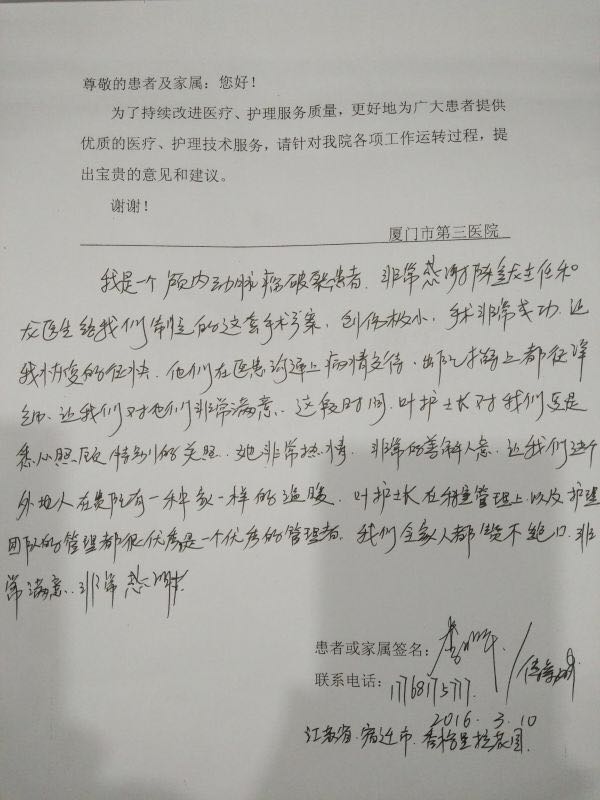 尊敬的患者及家属：您好！
为了持续改进医疗、护理服务质量，更好地为广大患者提供
优质的医疗、护理技术服务，请针对我院各项工作运转过程，提
出宝贵的意见和建议。
谢谢！
厦门市第三医院
我是一个颅内动脉瘤破裂患者．非常感谢陈 主任和
龙医生给我们制定的这套手术方案，创伤极小，手术非常成功．让
我恢复的很快．他们在医患沟通上病情交待、出院指导上都很详
细．让我们对他们非常满意．这段时间．叶护士长对我们更是
悉心照顾 特别的关照．她非常热情．非常的善解人意．让我们这个
外地人在贵院有一种家一样的温暖．叶护士长在 管理上以及护理
团队的管理都很优秀是一个优秀的管理者．我们全家人都赞不绝口．非
常满意．非常感谢
患者或家属签名：李
联系电话：17768175777
2016.3.10
江苏省．宿迁市．香格里拉花园